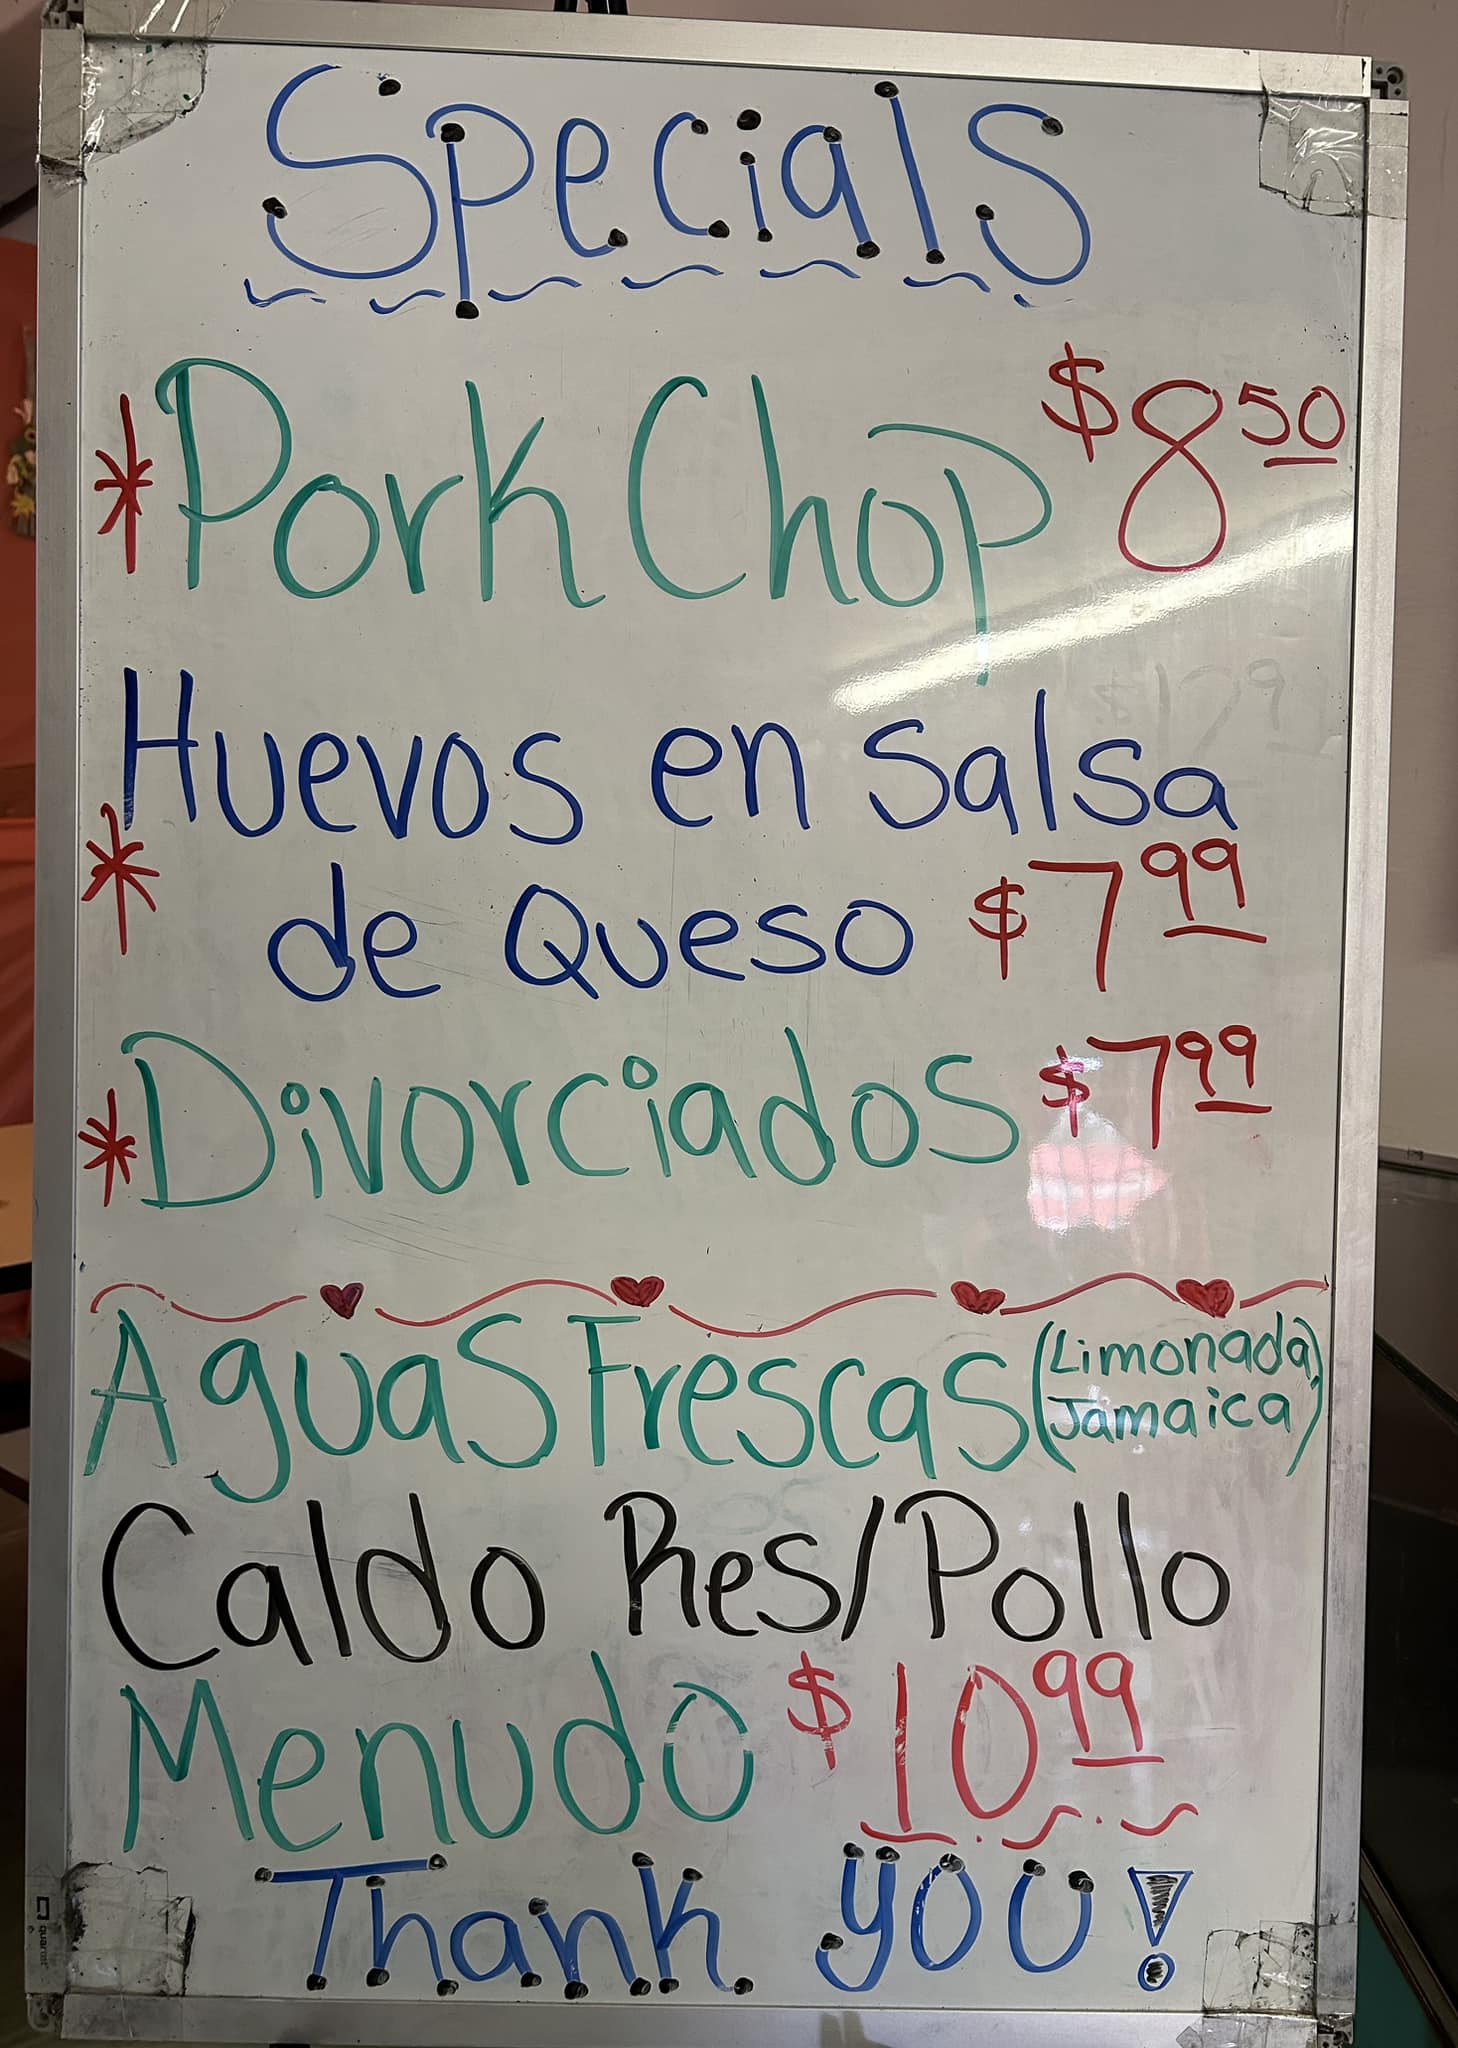 Specials
* Pork Chop $8.50
Huevos en salsa
* de Queso $7.99
* Divorciados $7.99
Aguas Frescas (Limonada,
Jamaica)
Caldo Res/Pollo
Menudo $10.99
Thank you!
quartet